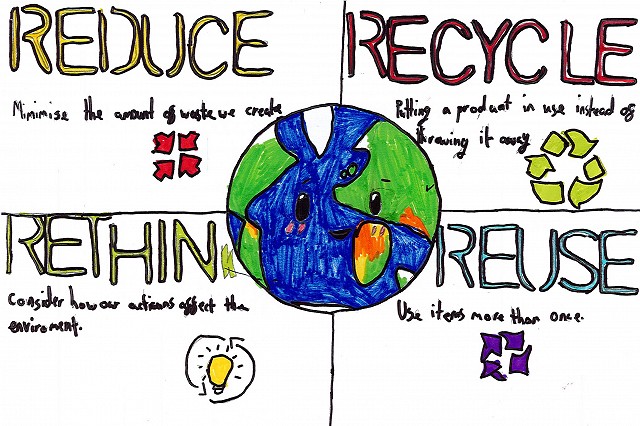 REDUCE
Mimimise the amount of waste we create
RECYCLE
Putting a product in use instead of
throwing it away
RETHINK
Consider how our actions affect the
enviroment.
REUSE
Use items more than once.